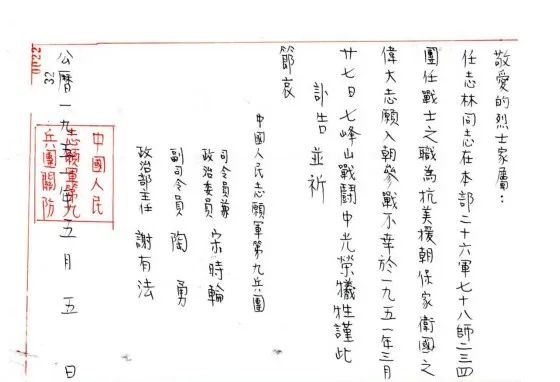 敬愛的烈士家屬：
任志林同志在本部二十六軍七十八師二三四
團任戰士之職為抗美援朝保家衛國之
偉大志願入朝參戰不幸於一九五一年三月
廿七日七峰山戰鬥中光榮犧牲謹此
訃告並祈
節哀
中國人民志願軍第九兵團
司令員兼
政治委員 宋時輪
副司令員 陶勇
政治部主任 謝有法
中國人民
志願軍第九
兵團關防
公曆一九五 年五月五日
32